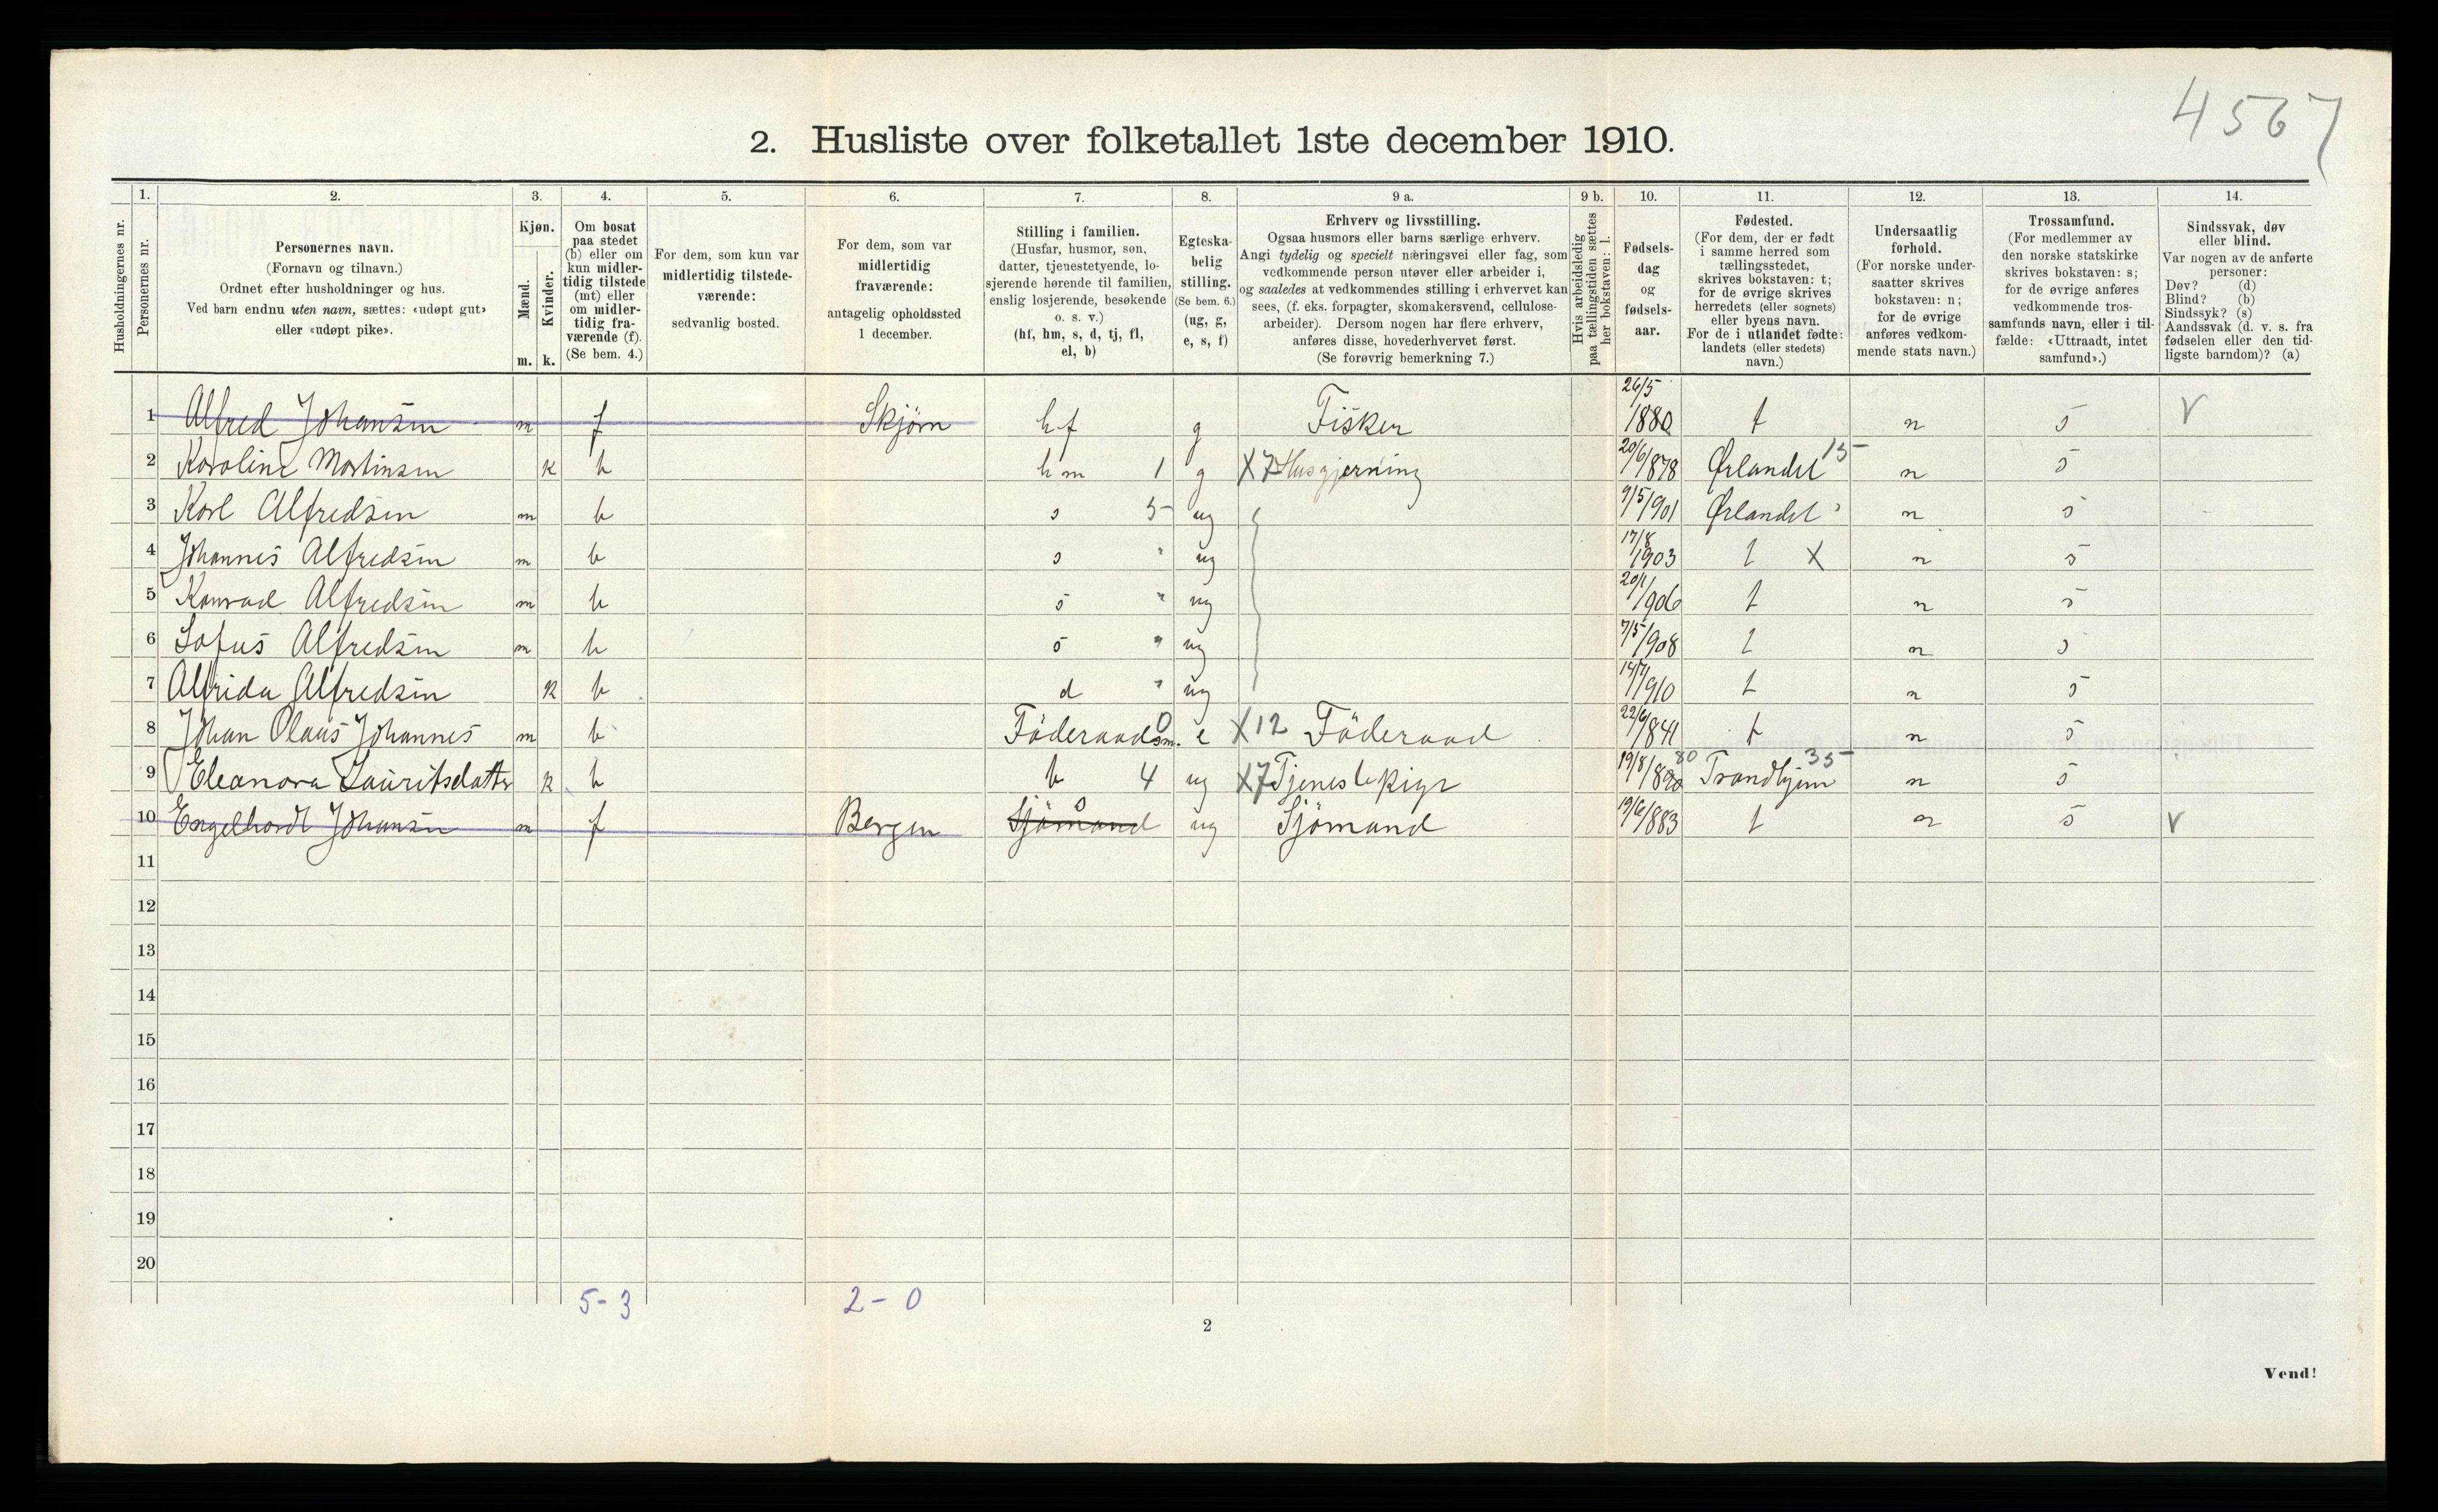 4567
2. Husliste over folketallet 1ste december 1910.
1. 2. 3. 4. 5. 6. 7. 8. 9 a. 9 b. 10. 11. 12. 13. 14.
Husholdningernes nr.
Personernes nr.
Personernes navn.
(Fornavn og tilnavn.)
Ordnet efter husholdninger og hus.
Ved barn endnu uten navn, sættes: «udøpt gut»
eller «udøpt pike».
Kjøn.
Mænd.
Kvinder.
m. k.
Om bosat
paa stedet
(b) eller om
kun midler-
tidig tilstede
(mt) eller
om midler-
tidig fra-
værende (f).
(Se bem. 4.)
For dem, som kun var
midlertidig tilstede-
værende:
sedvanlig bosted.
For dem, som var
midlertidig
fraværende:
antagelig opholdssted
1 december.
Stilling i familien.
(Husfar, husmor, søn,
datter, tjenestetyende, lo-
sjerende hørende til familien,
enslig losjerende, besøkende
o. s. v.)
(hf, hm, s, d, tj, fl,
el, b)
Egteska-
belig
stilling.
(Se bem. 6.)
(ug, g,
e, s, f)
Erhverv og livsstilling.
Ogsaa husmors eller barns særlige erhverv.
Angi tydelig og specielt næringsvei eller fag, som
vedkommende person utøver eller arbeider i,
og saaledes at vedkommendes stilling i erhvervet kan
sees, (f. eks. forpagter, skomakersvend, cellulose-
arbeider). Dersom nogen har flere erhverv,
anføres disse, hovederhvervet først.
(Se forøvrig bemerkning 7.)
Hvis arbeidsledig
paa tællingstiden sættes
her bokstaven: l.
Fødsels-
dag
og
fødsels-
aar.
Fødested.
(For dem, der er født
i samme herred som
tællingsstedet,
skrives bokstaven: t;
for de øvrige skrives
herredets (eller sognets)
eller byens navn.
For de i utlandet fødte:
landets (eller stedets)
navn.)
Undersaatlig
forhold.
(For norske under-
saatter skrives
bokstaven: n;
for de øvrige
anføres vedkom-
mende stats navn.)
Trossamfund.
(For medlemmer av
den norske statskirke
skrives bokstaven: s;
for de øvrige anføres
vedkommende tros-
samfunds navn, eller i til-
fælde: «Uttraadt, intet
samfund».)
Sindssvak, døv
eller blind.
Var nogen av de anførte
personer:
Døv? (d)
Blind? (b)
Sindssyk? (s)
Aandssvak (d. v. s. fra
fødselen eller den tid-
ligste barndom)? (a)
1 Alfred Johansen m f Skjørn hf g Fisker 26/5 1880 t n s V
2 Karoline Martinsen k b hm 1 g X7 Husgjerning 20/6/878 Ørlandet 15 n s
3 Karl Alfredsen m b s 5 ug 9/5/901 Ørlandet n s
4 Johannes Alfredsen m b s " ug 17/8 1903 t X n s
5 Konrad Alfredsen m b s " ug 20/1/906 t n s
6 Sofus Alfredsen m b s " ug 7/5/908 t n s
7 Alfrida Alfredsen k b d " ug 14/7/1910 t n s
8 Johan Olaus Johannes m b Föderaadsm. 0 e X12 Föderaad 22/6/841 t n s
9 Eleanora Lauritsdatter k b b 4 ug X7 Tjenestepige 19/8/880 80 Trondhjem 35 n s
10 Engelhardt Johansen m f Bergen Sjömand ug Sjömand 19/6/883 t n s V
11
12
13
14
15
16
17
18
19
20
5-3 2-0
2
Vend!